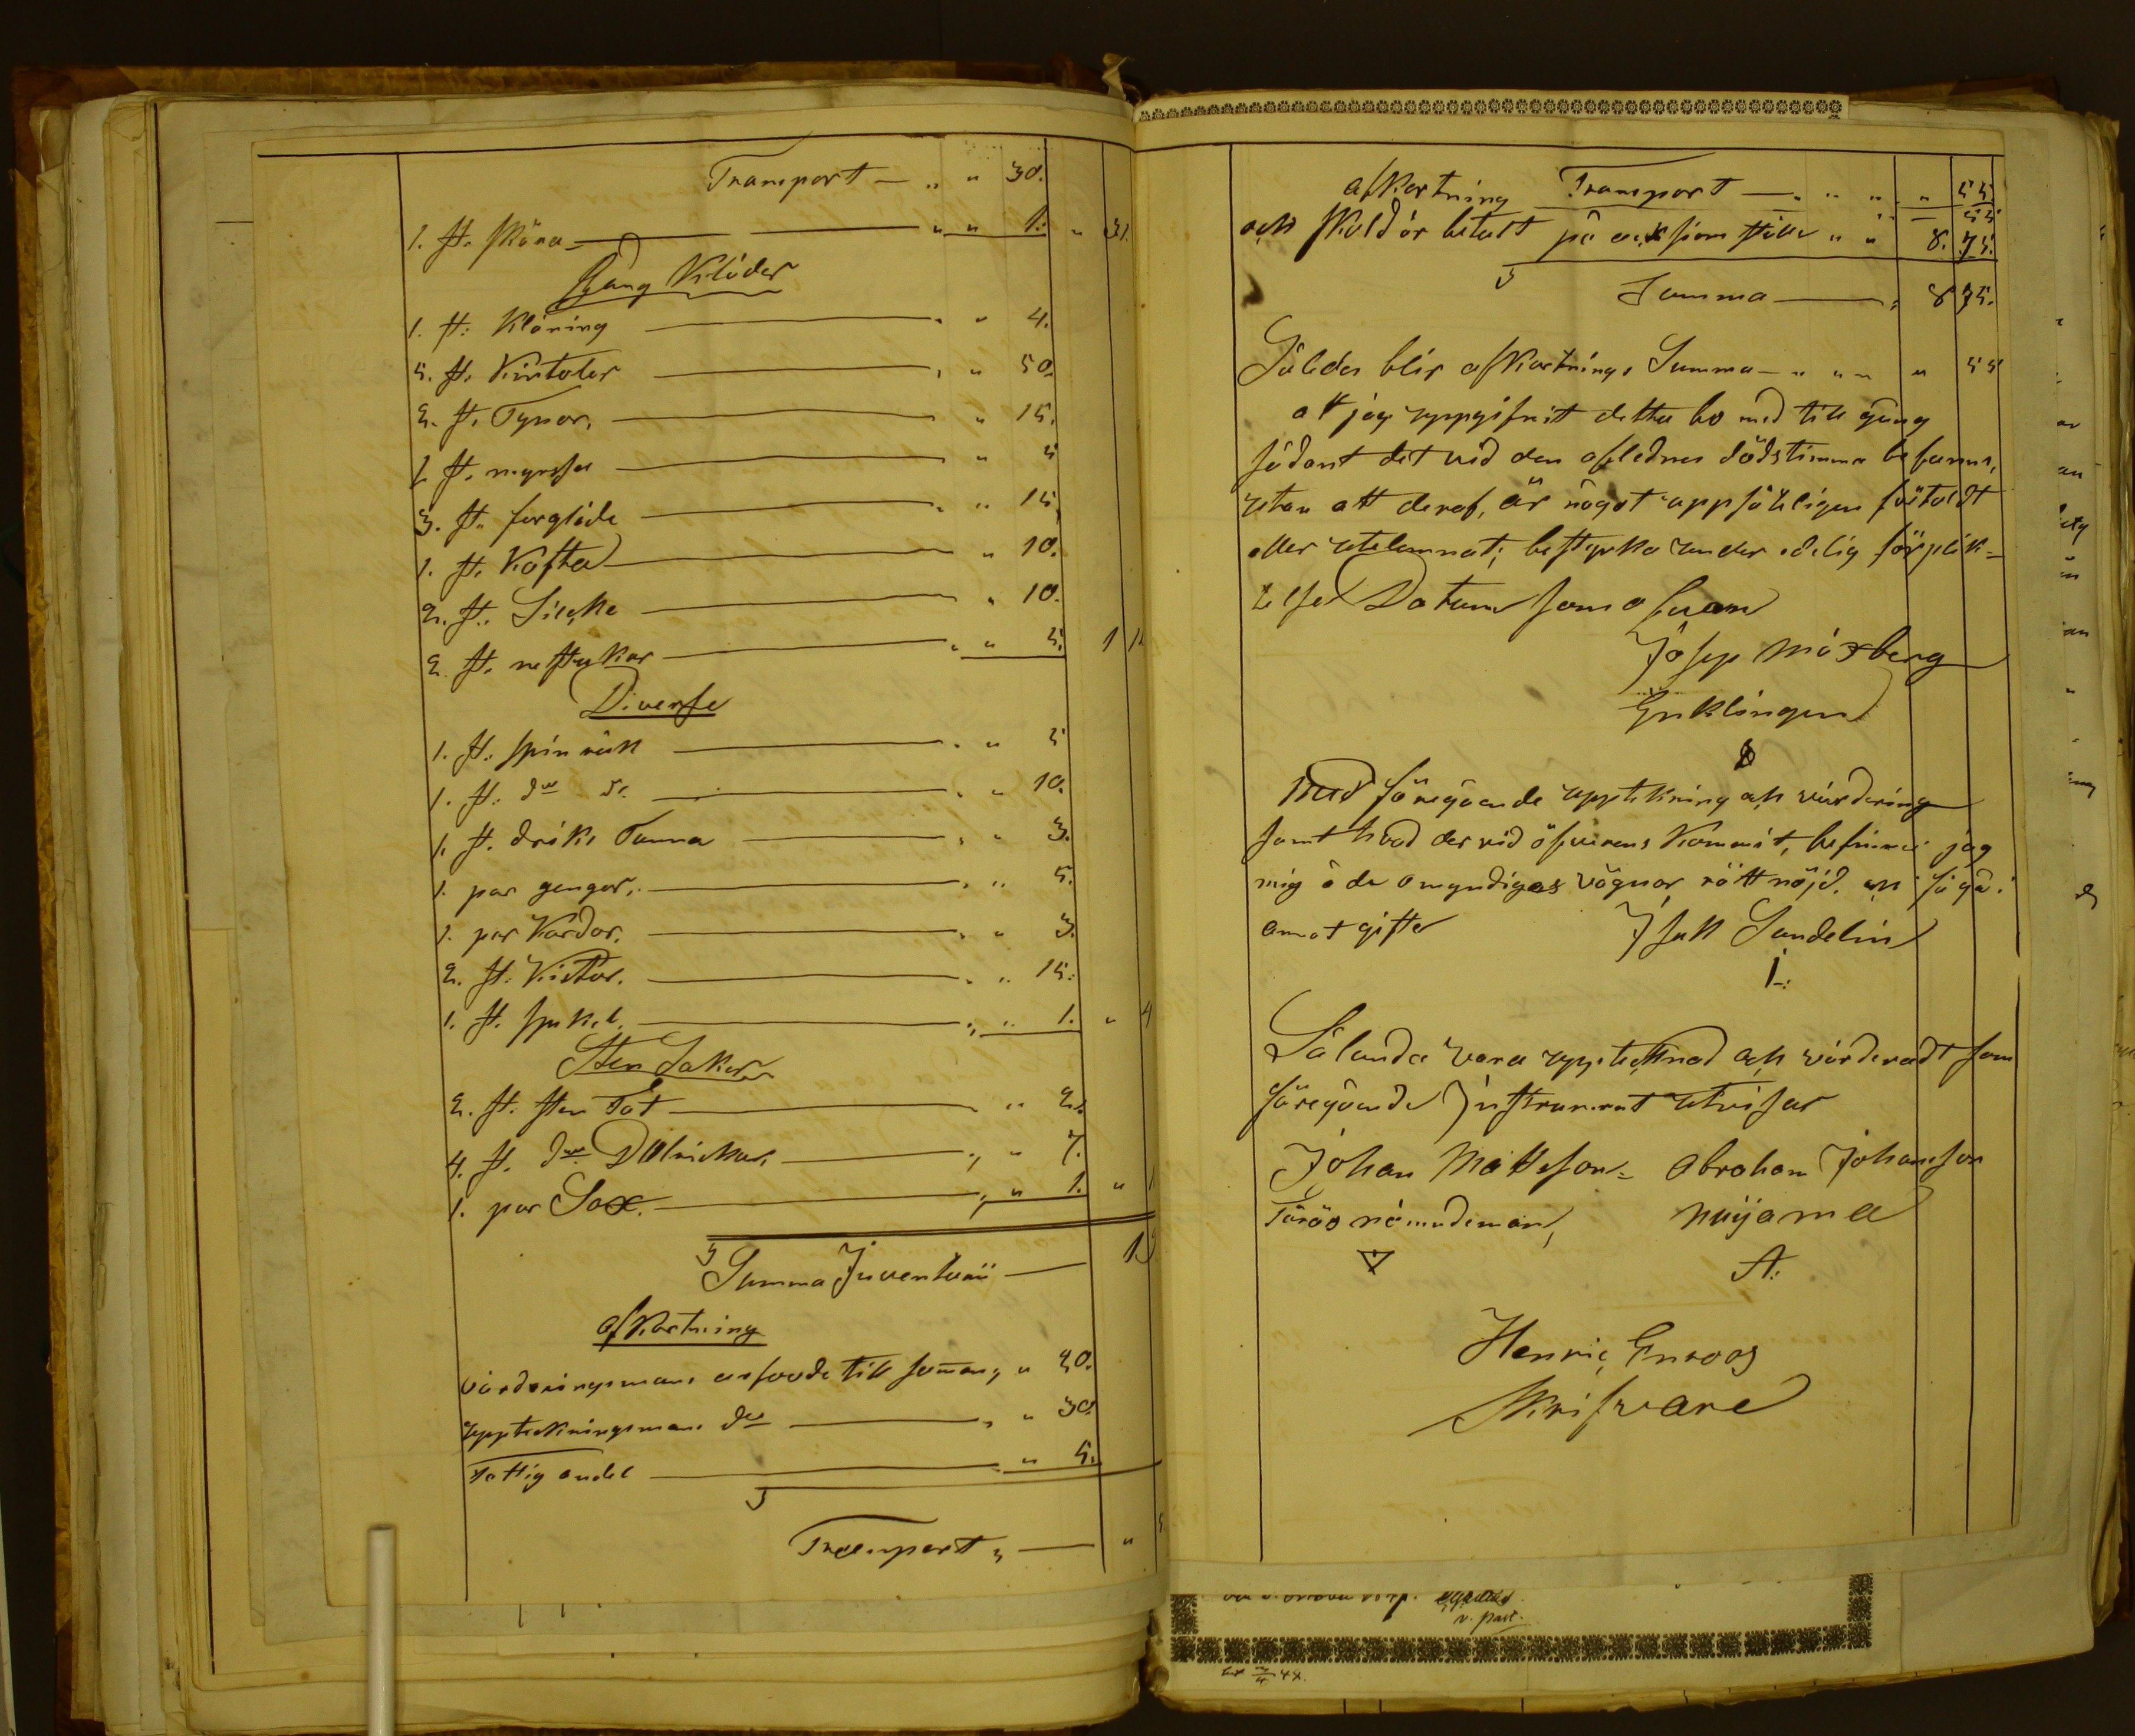 Transport — " " 30.
1. st. skära — " " 1. " 31.
Gång Kläder
1. st. Kläning — " " 4.
5. st. Kintolar — " " 50.
2. st. Tynor. — " 15.
1 st. myssa — " 5
3. st. forgläde — " " 15,
1. st. Kofta — " 10.
2. st. Silcke — " 10.
2. st. nestukar — " " 5. 1 1
Diverse
1. st. spin råck — " " 5
1. st. do — " " 10.
1. st. driks Tunna — " " 3.
1. par gengor. — " " 5.
1. par Kardor. — " " 3.
2. st. Kistor. — " " 15.
1. st. — " " 1. " 4
Sten Saker
2. st. sten Fat — " 2.
4. st. do Dalrickar. — " " 7.
1. par Sax. — " " 1. " 1
Summa Inventarii — 1
afkortning
värderingsmans arfvode till saman, " 20.
uppteckningsmans do — " " 30.
Fattig andel — " 5.
Transport, — "
afkortning Transport — " " " " 55
— 55
och skuld är betalt på auksion ställe " " 8. 75.
Summa — " 8 75.
Således blir afkortnings Summa — " " " " 55
att jag uppgifvit detta bo med till gång
sådant det vid den aflednes dödstimma befanns,
utan att deraf, är något uppsåteligen
eller utelemnat; bestyrka under edelig förplik=
telse Datum som ofvan
Josep Måxberg
Enklingen
Med föregående uppteckning och värdering
samt hvad der vid öfverens Kommit, befinner jag
mig å de omyndigas vägnar rätt nöjd. och i
annat gifte Isak Sandelin
Sålunda vara upptecknad och värderadt som
föregående Instrument utvisar
Johan Mattsson= Abraham Johansson
nämndeman, nuijama
Henric Enroos
Skrifvare
v. past.